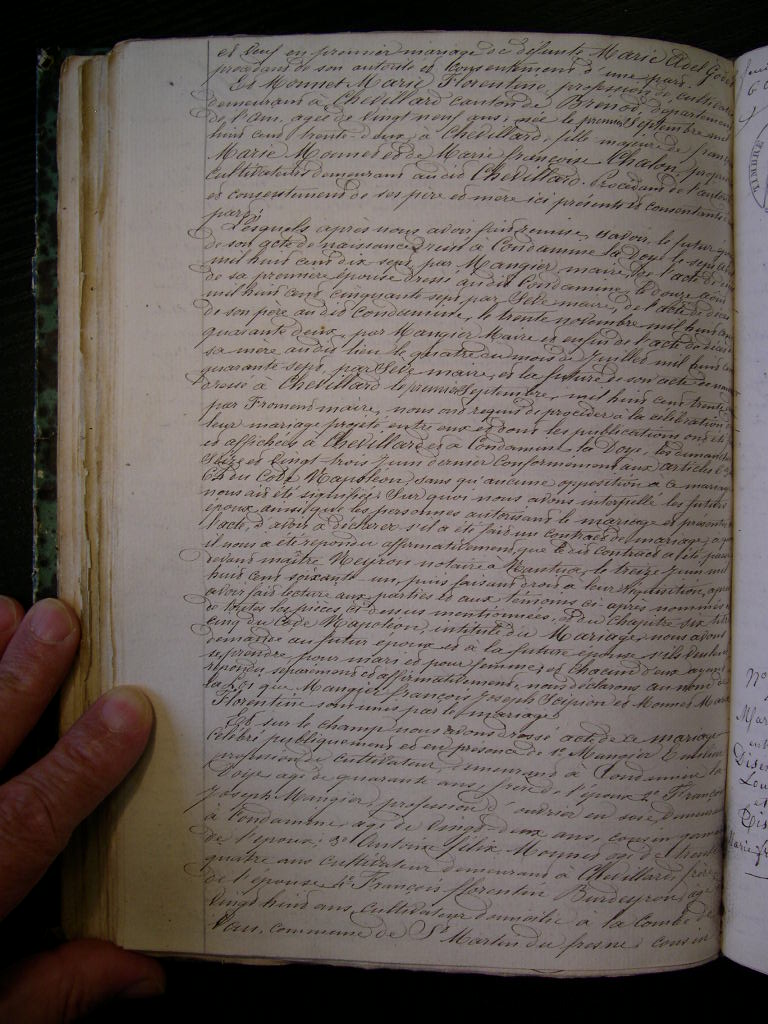 et veuf en premier mariage de défunte Marie
procédant de son autorité et consentement d'une part.
Et Monnet Marie Florentine, profession de cultiva
demeurant à Chevillard canton de Brenod, département
de l'ain, agée de vingt neuf ans, née le premier septembre mil
huit cent trente deux, à Chevillard, fille majeure de
Marie Monnet et de Marie françoise Chalon, prop
cultivateurs demeurant audit Chevillard. Procédant de l'autorité
et consentement de ses père et mère ici présents et consentants d'
part.
Lesquels après nous avoir fait remise, savoir le futur
de son acte de naissance dressé à Condamine la Doye le sept
mil huit cent dix sept, par Mangier, maire, de l'acte de
de sa première épouse dressé audit Condamine, le douze
mil huit cent cinquante sept par maire, de l'acte de décès
de son père audit Condamine, le trente novembre mil huit cent
quarante deux, par Mangier Maire et enfin de l'acte de décès
sa mère audit lieu le quatre du mois de Juillet mil huit cent
quarante sept, par maire, et la future de son acte de
dressé à Chevillard le premier septembre, mil huit cent trente
par Froment maire, nous ont requis de procéder à la célébration
leur mariage projeté entre eux et dont les publications ont été
et affichées à Chevillard et à Condamine la Doye, les dimanches
Seize et vingt trois Juin dernier conformément aux articles
64 du Code Napoléon, sans qu'aucune opposition à ce mariage
nous ait été signifiée. Sur quoi nous avons interpellé les futurs
époux ainsi que les personnes autorisant le mariage et présentes
l'acte, d'avoir à déclarer s'il a été fait un contrat de mariage,
il nous a été répondu affirmativement que le dit contrat a été passé
devant maître Neyron notaire à Nantua, le treize Juin mil
huit cent soixante un, puis faisant droit à leur réquisition, après
avoir fait lecture aux parties et aux témoins ci après nommés
de toutes les pièces ci dessus mentionnées, et du chapitre six
cinq du Code Napoléon, intitulé du Mariage, nous avons
demandé au futur époux et à la future épouse s'ils veulent
se prendre pour mari et pour femme, et chacun d'eux ayant
répondu séparément et affirmativement, nous déclarons au nom de
la Loi que Mangier françois Joseph Scipion et Monnet Marie
Florentine sont unis par le mariage.
Et sur le champ nous avons dressé acte de ce mariage
célébré publiquement et en présence de 1° Mangier
profession de cultivateur, demeurant à Condamine la
Doye agé de quarante ans, frère de l'époux 2° François
Joseph Mangier, profession d'ouvrier en soie, demeurant
à Condamine, agé de vingt deux ans, cousin germain
de l'époux; 3° Antoine Félix Monnet agé de trente
quatre ans cultivateur demeurant à Chevillard, frère
de l'épouse 4° François florentin Burdeyron, agé de
vingt huit ans, cultivateur domicilié à la Combe
Vau, commune de St Martin du fresne, cousin
TIMBRE
N°
Mar
Marie